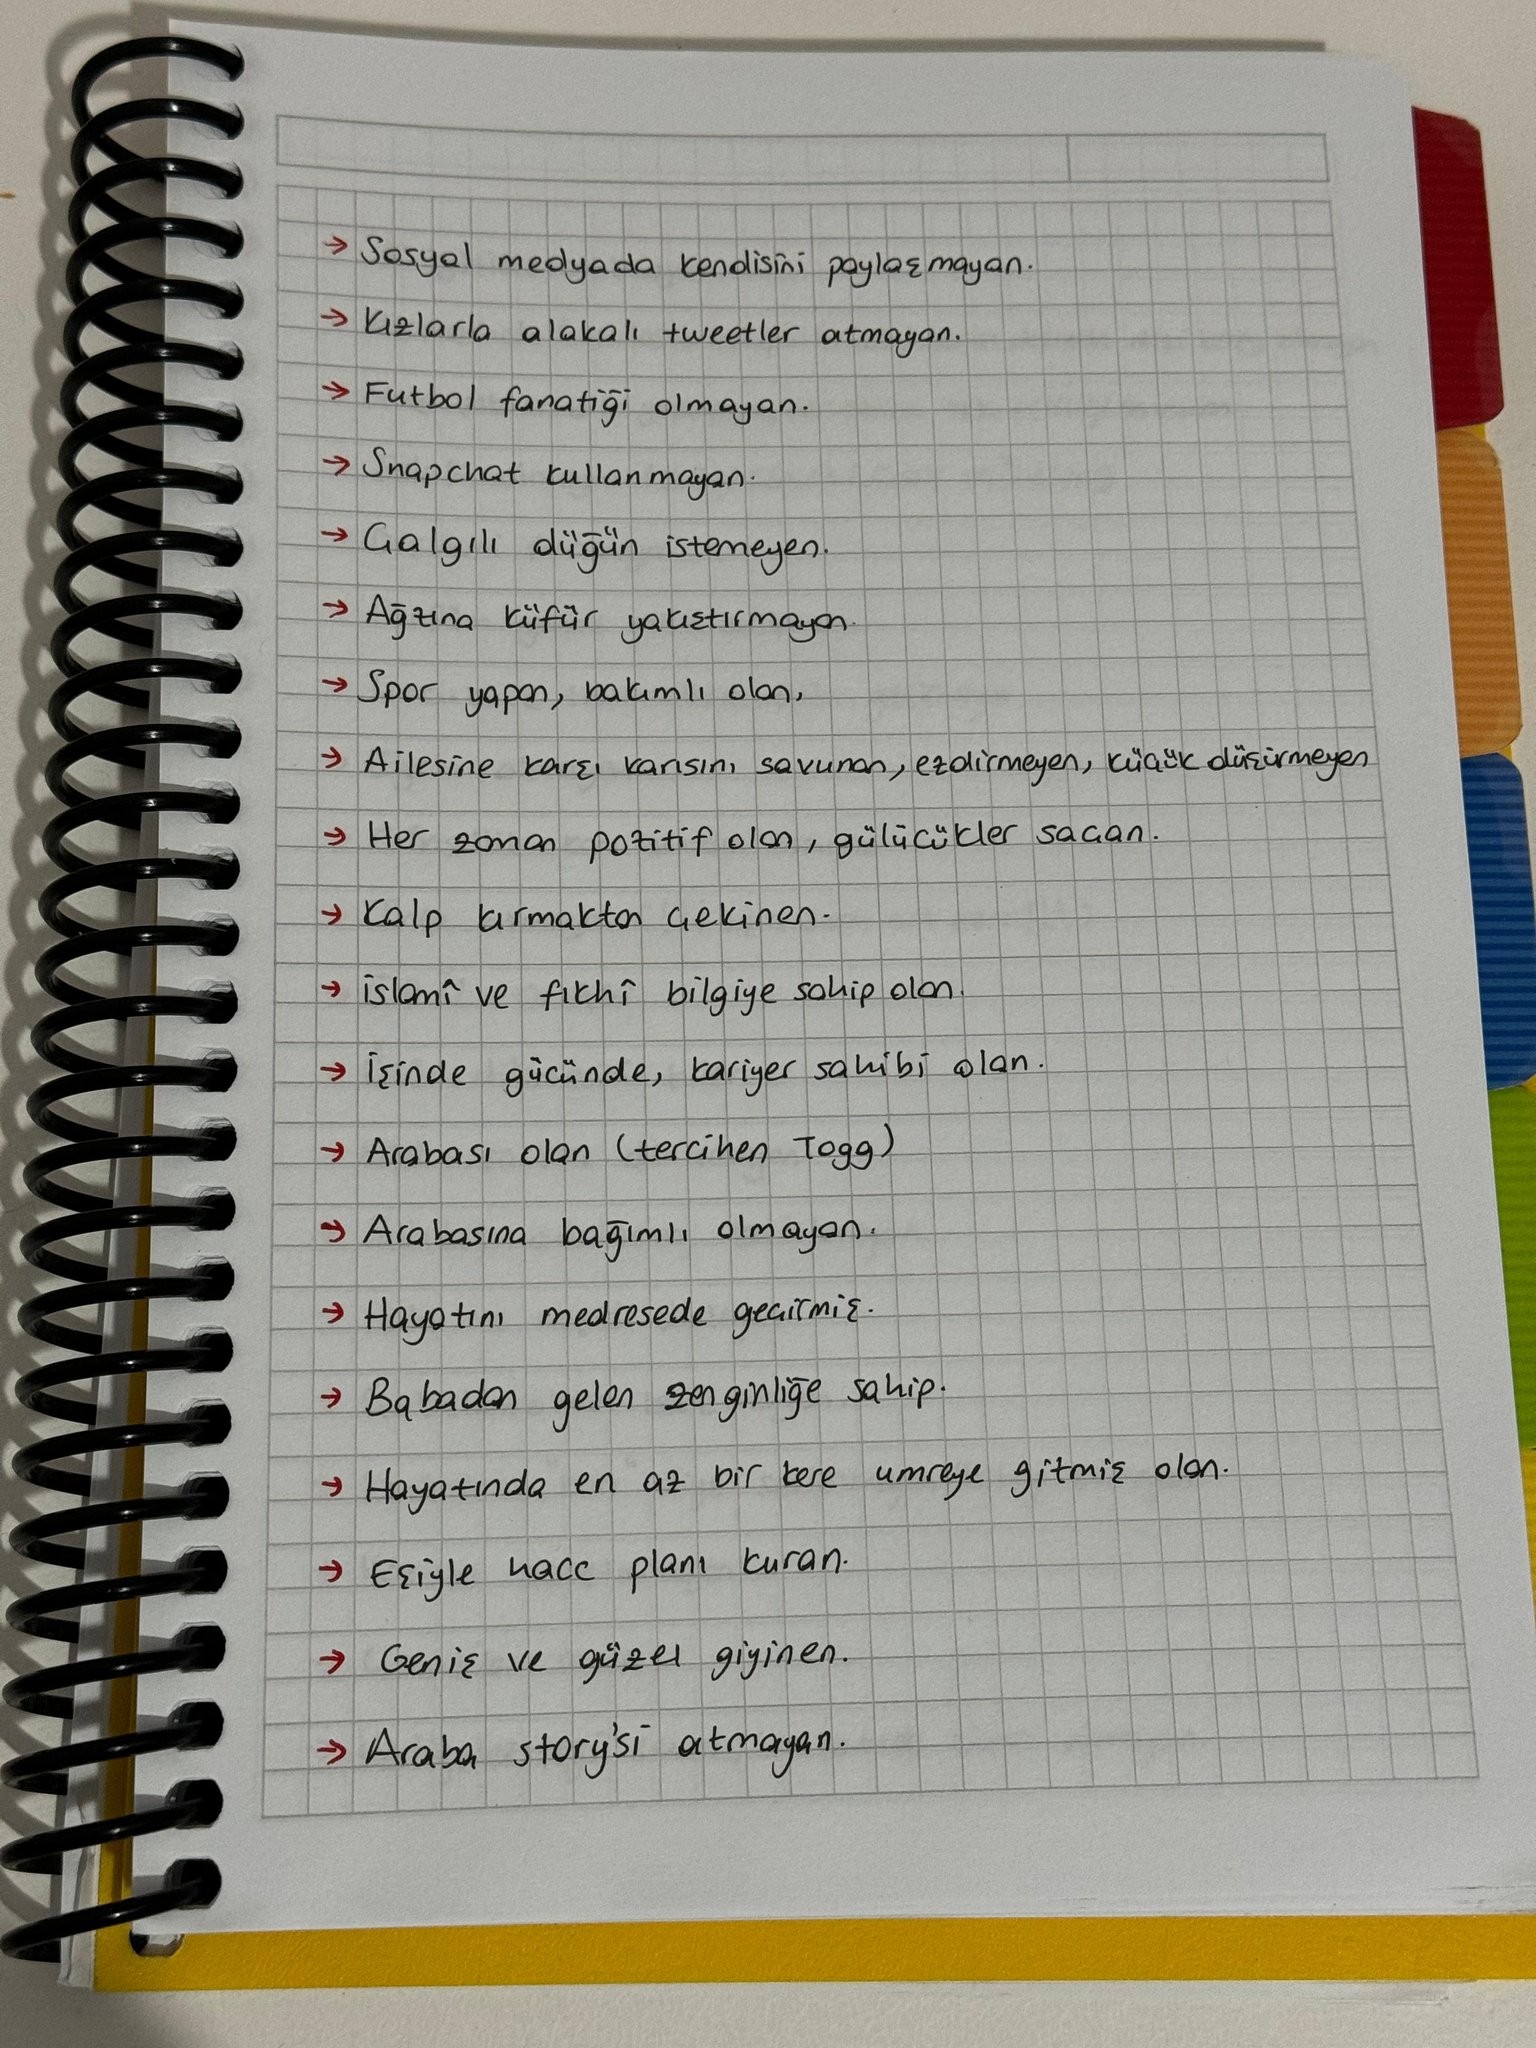 → Sosyal medyada kendisini paylaşmayan.
→ Kızlarla alakalı tweetler atmayan.
→ Futbol fanatiği olmayan.
→ Snapchat kullanmayan.
→ Çalgılı düğün istemeyen.
→ Ağzına küfür yakıştırmayan.
→ Spor yapan, bakımlı olan,
→ Ailesine karşı karısını savunan, ezdirmeyen, küçük düşürmeyen
→ Her zaman pozitif olan, gülücükler saçan.
→ Kalp kırmaktan çekinen.
→ İslamî ve fıkhî bilgiye sahip olan.
→ İşinde gücünde, kariyer sahibi olan.
→ Arabası olan (tercihen Togg)
→ Arabasına bağımlı olmayan.
→ Hayatını medresede geçirmiş.
→ Babadan gelen zenginliğe sahip.
→ Hayatında en az bir kere umreye gitmiş olan.
→ Eşiyle hacc planı kuran.
→ Geniş ve güzel giyinen.
→ Araba story'si atmayan.